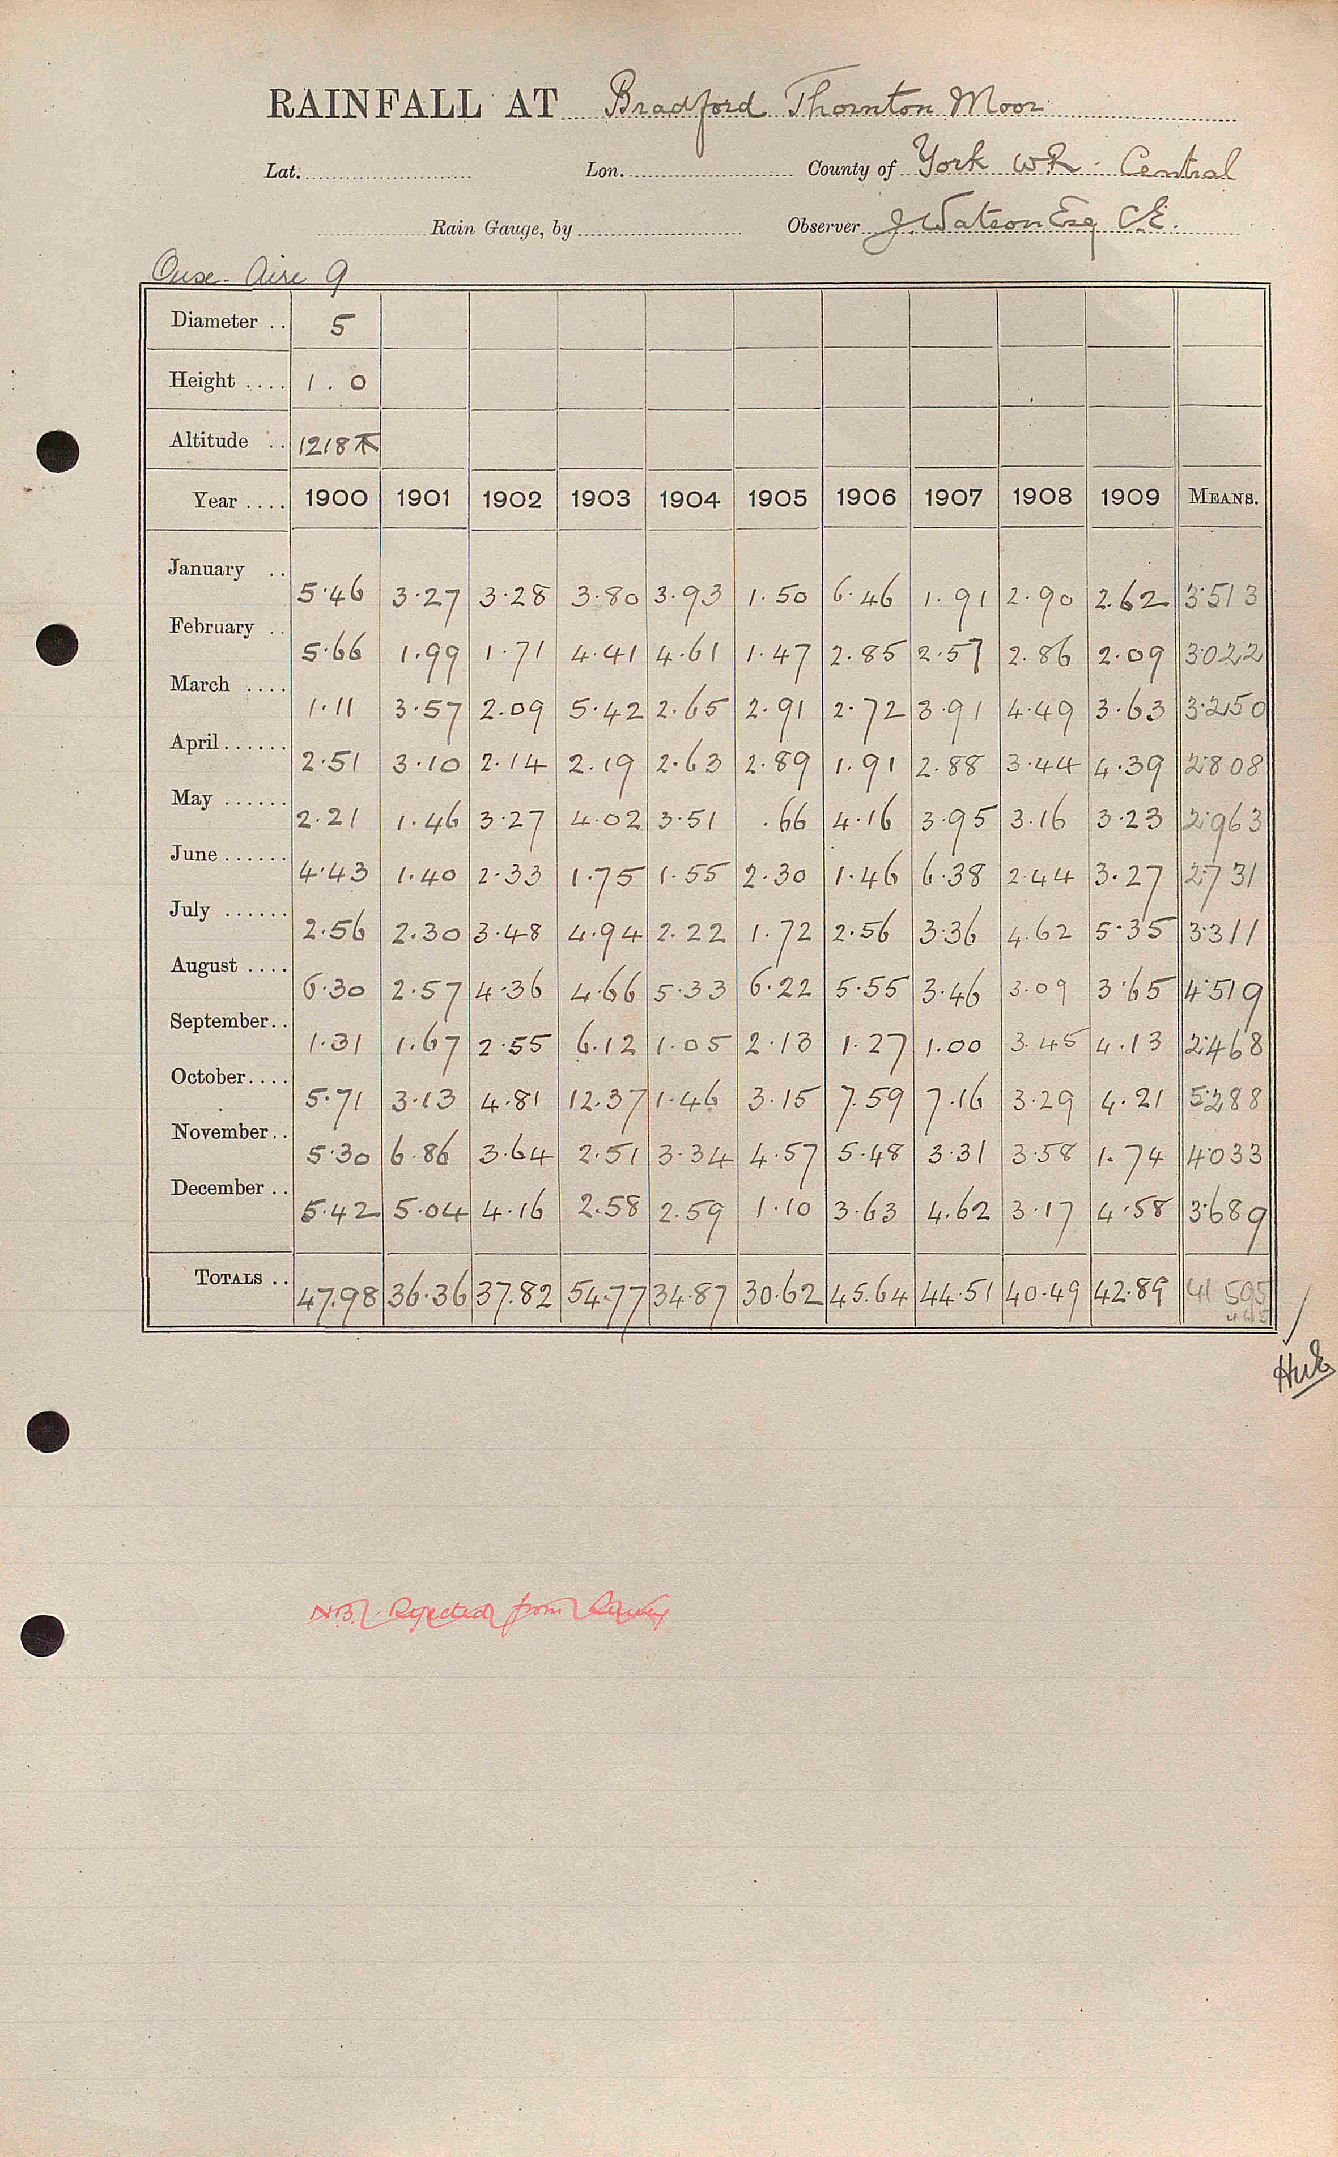 RAINFALL AT Bradford Thornton Moor
Lat. Lon. County of York W R. Central
Rain Gauge, by Observer J. Watson Esq C.E.
Ouse - Aire 9
Diameter .. 5
Height .... 1.0
Altitude .. 1218
Year .... 1900 1901 1902 1903 1904 1905 1906 1907 1908 1909 MEANS.
January .. 5.46 3.27 3.28 3.80 3.93 1.50 6.46 1.91 2.90 2.62 3.513
February .. 5.66 1.99 1.71 4.41 4.61 1.47 2.85 2.57 2.86 2.09 3.022
March .... 1.11 3.57 2.09 5.42 2.65 2.91 2.72 3.91 4.49 3.63 3.250
April ...... 2.51 3.10 2.14 2.19 2.63 2.89 1.91 2.88 3.44 4.39 2.808
May ...... 2.21 1.46 3.27 4.02 3.51 .66 4.16 3.95 3.16 3.23 2.963
June ...... 4.43 1.40 2.33 1.75 1.55 2.30 1.46 6.38 2.44 3.27 2.731
July ...... 2.56 2.30 3.48 4.94 2.22 1.72 2.56 3.36 4.62 5.35 3.311
August .... 6.30 2.57 4.36 4.66 5.33 6.22 5.55 3.46 3.09 3.65 4.519
September.. 1.31 1.67 2.55 6.12 1.05 2.13 1.27 1.00 3.45 4.13 2.468
October.... 5.71 3.13 4.81 12.37 1.46 3.15 7.59 7.16 3.29 4.21 5.288
November.. 5.30 6.86 3.64 2.51 3.34 4.57 5.48 3.31 3.58 1.74 4.033
December .. 5.42 5.04 4.16 2.58 2.59 1.10 3.63 4.62 3.17 4.58 3.689
TOTALS .. 47.98 36.36 37.82 54.77 34.87 30.62 45.64 44.51 40.49 42.89 41 595
N.B. Rejected from